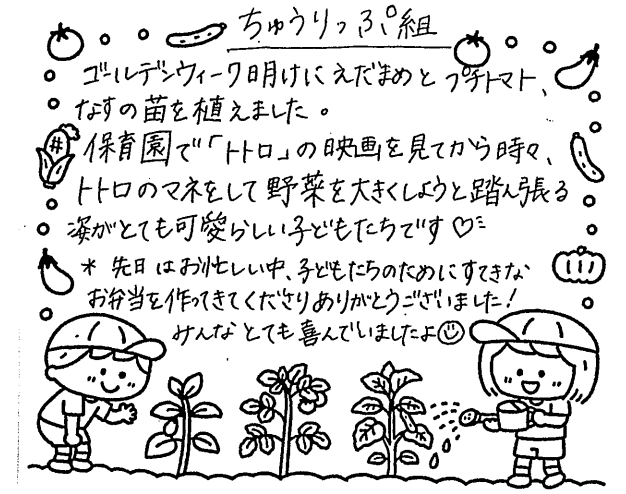 ちゅうりっぷ組
ゴールデンウィーク明けにえだまめとプチトマト、
なすの苗を植えました。
保育園で「トトロ」の映画を見てから時々、
トトロのマネをして野菜を大きくしようと踏ん張る
姿がとても可愛らしい子どもたちです♡
* 先日はお忙しい中、子どもたちのためにすてきな
お弁当を作ってきてくださりありがとうございました!
みんなとても喜んでいましたよ☺